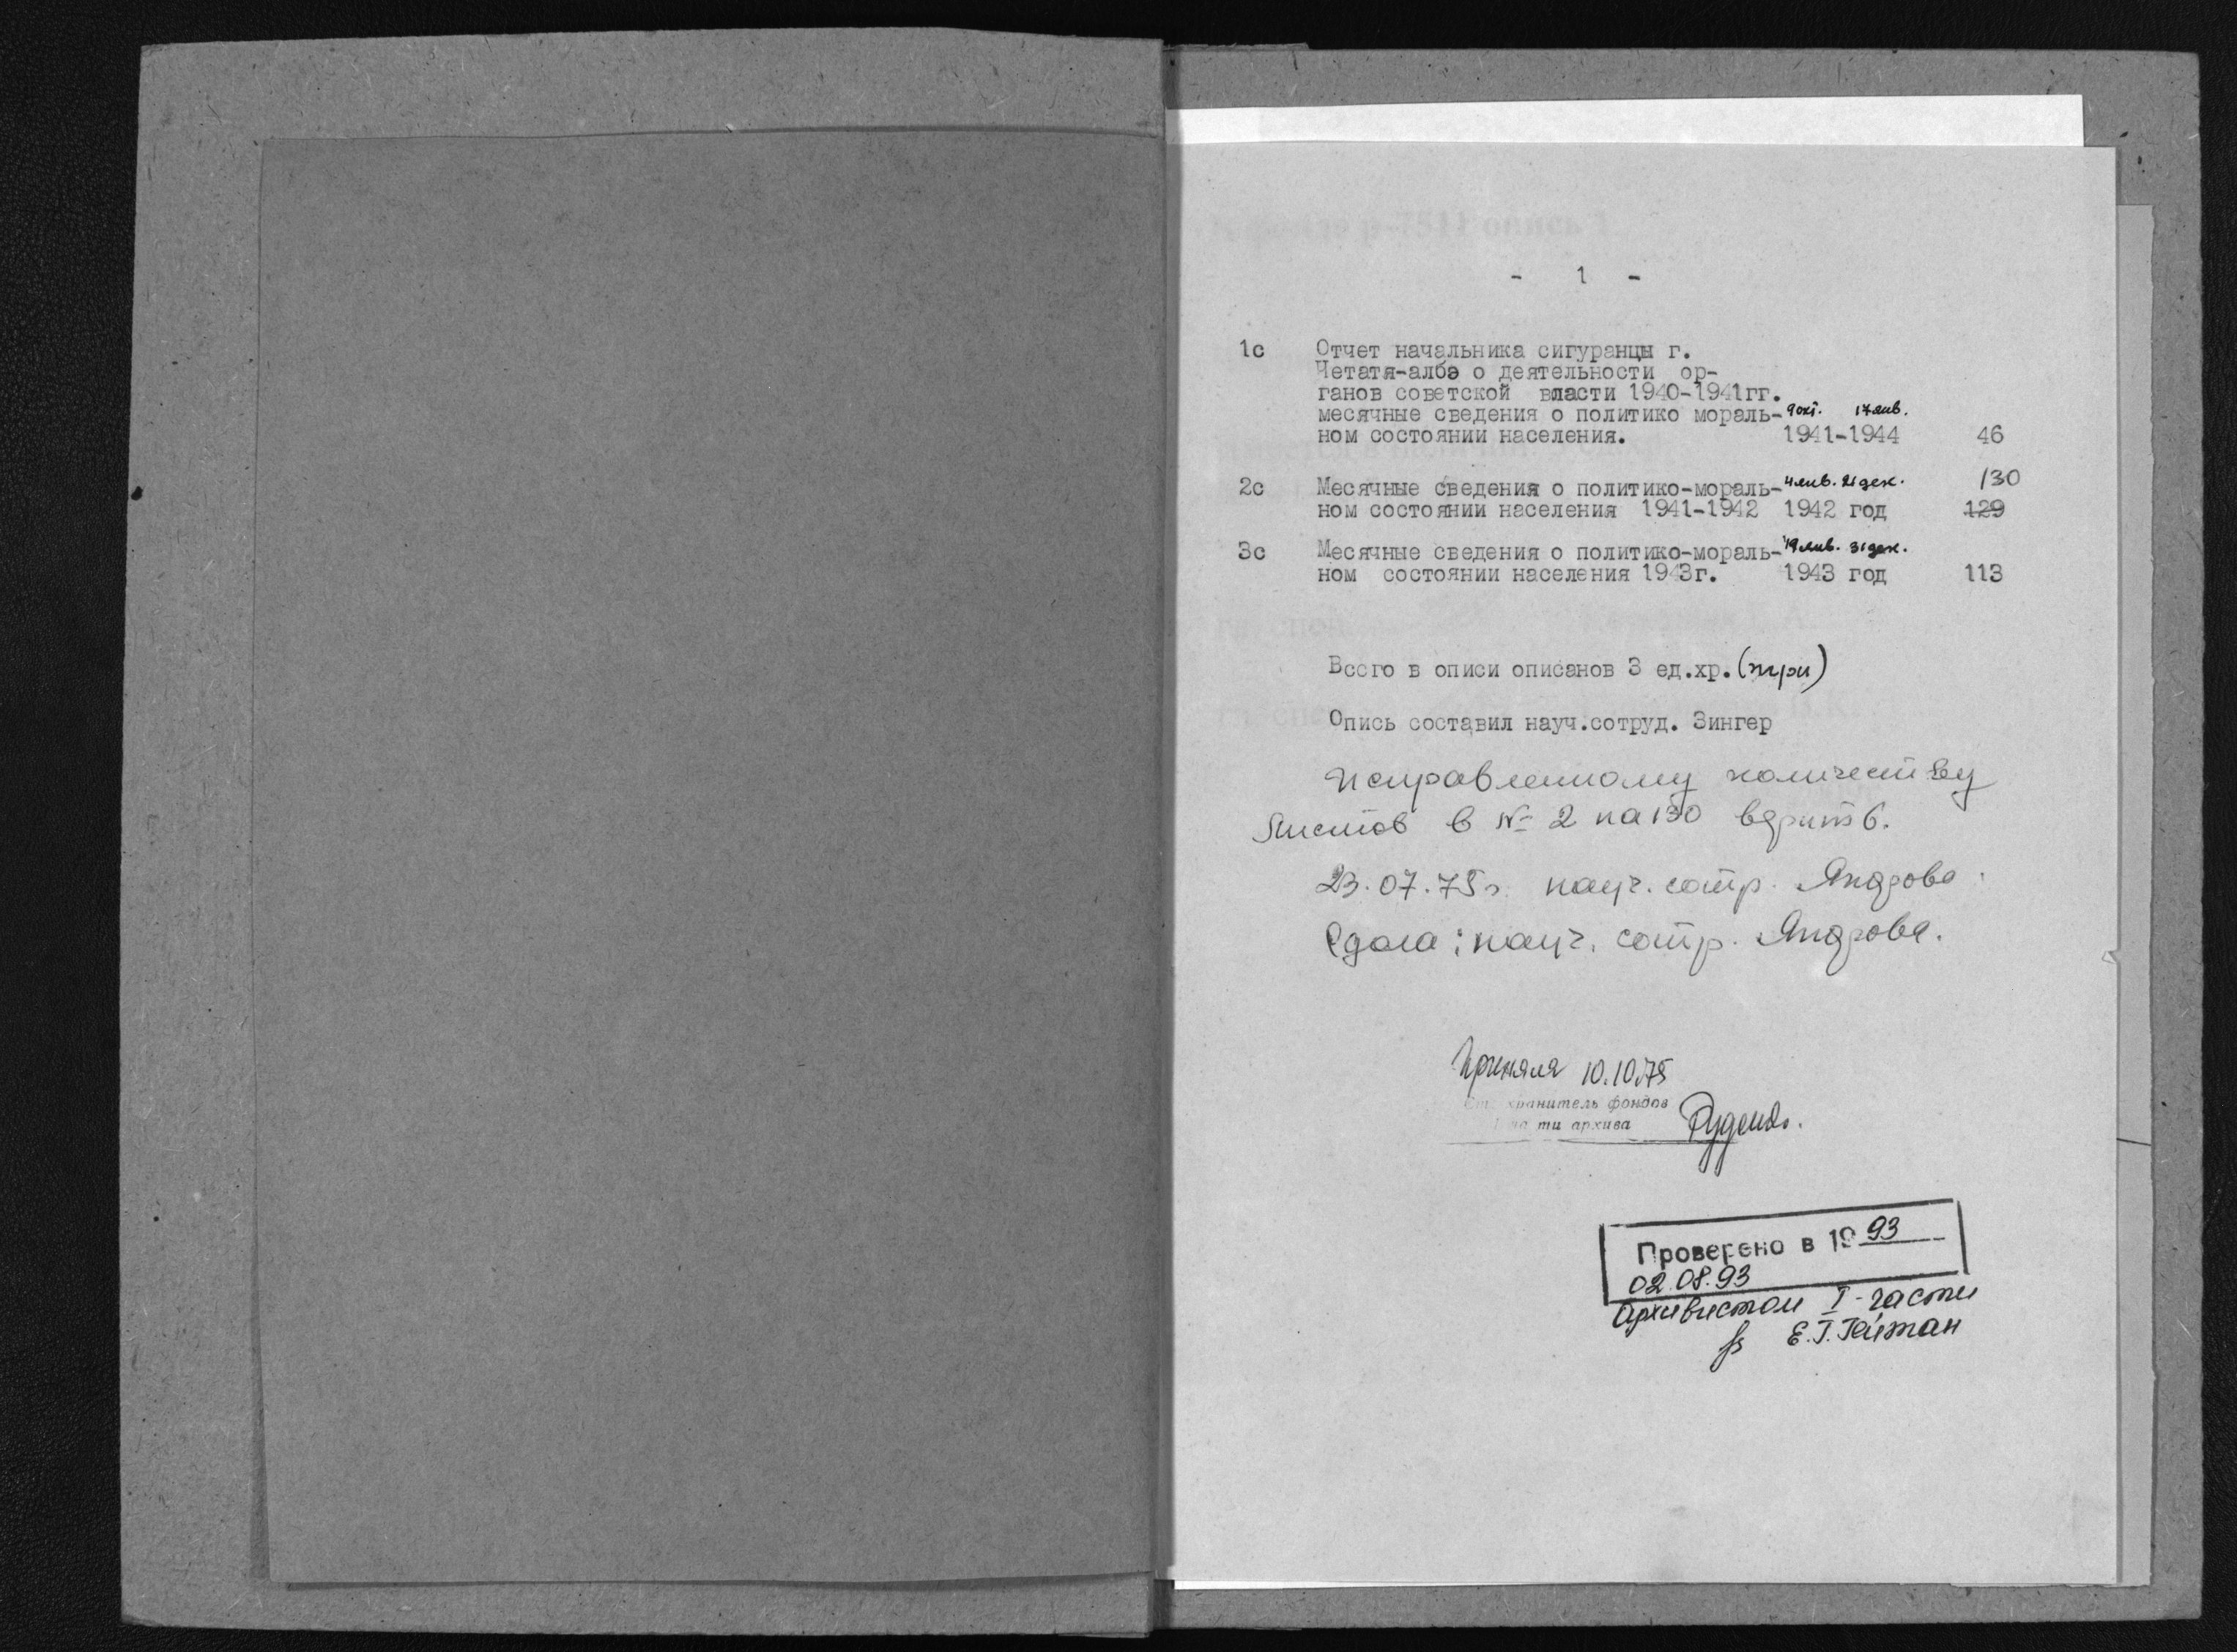 - 1 -
1с Отчет начальника сигуранцы г.
Четатя-албэ о деятельности ор-
ганов советской власти 1940-1941гг.
месячные сведения о политико мораль- 9окт. 17янв.
ном состоянии населения. 1941-1944 46
2с Месячные сведения о политико-мораль- 4янв. 21дек. 130
ном состоянии населения 1941-1942 1942 год 129
3с Месячные сведения о политико-мораль- 19янв. 31дек.
ном состоянии населения 1943г. 1943 год 113
Всего в описи описанов 3 ед.хр. (три)
Опись составил науч.сотруд. Зингер
Исправленному количеству
листов в № 2 на 130 верить.
23.07.75г. науч. сотр.
Сдала: науч. сотр.
Приняла 10.10.75
хранитель фондов
архива
Проверено в 1993
02.08.93
Архивистом I-части